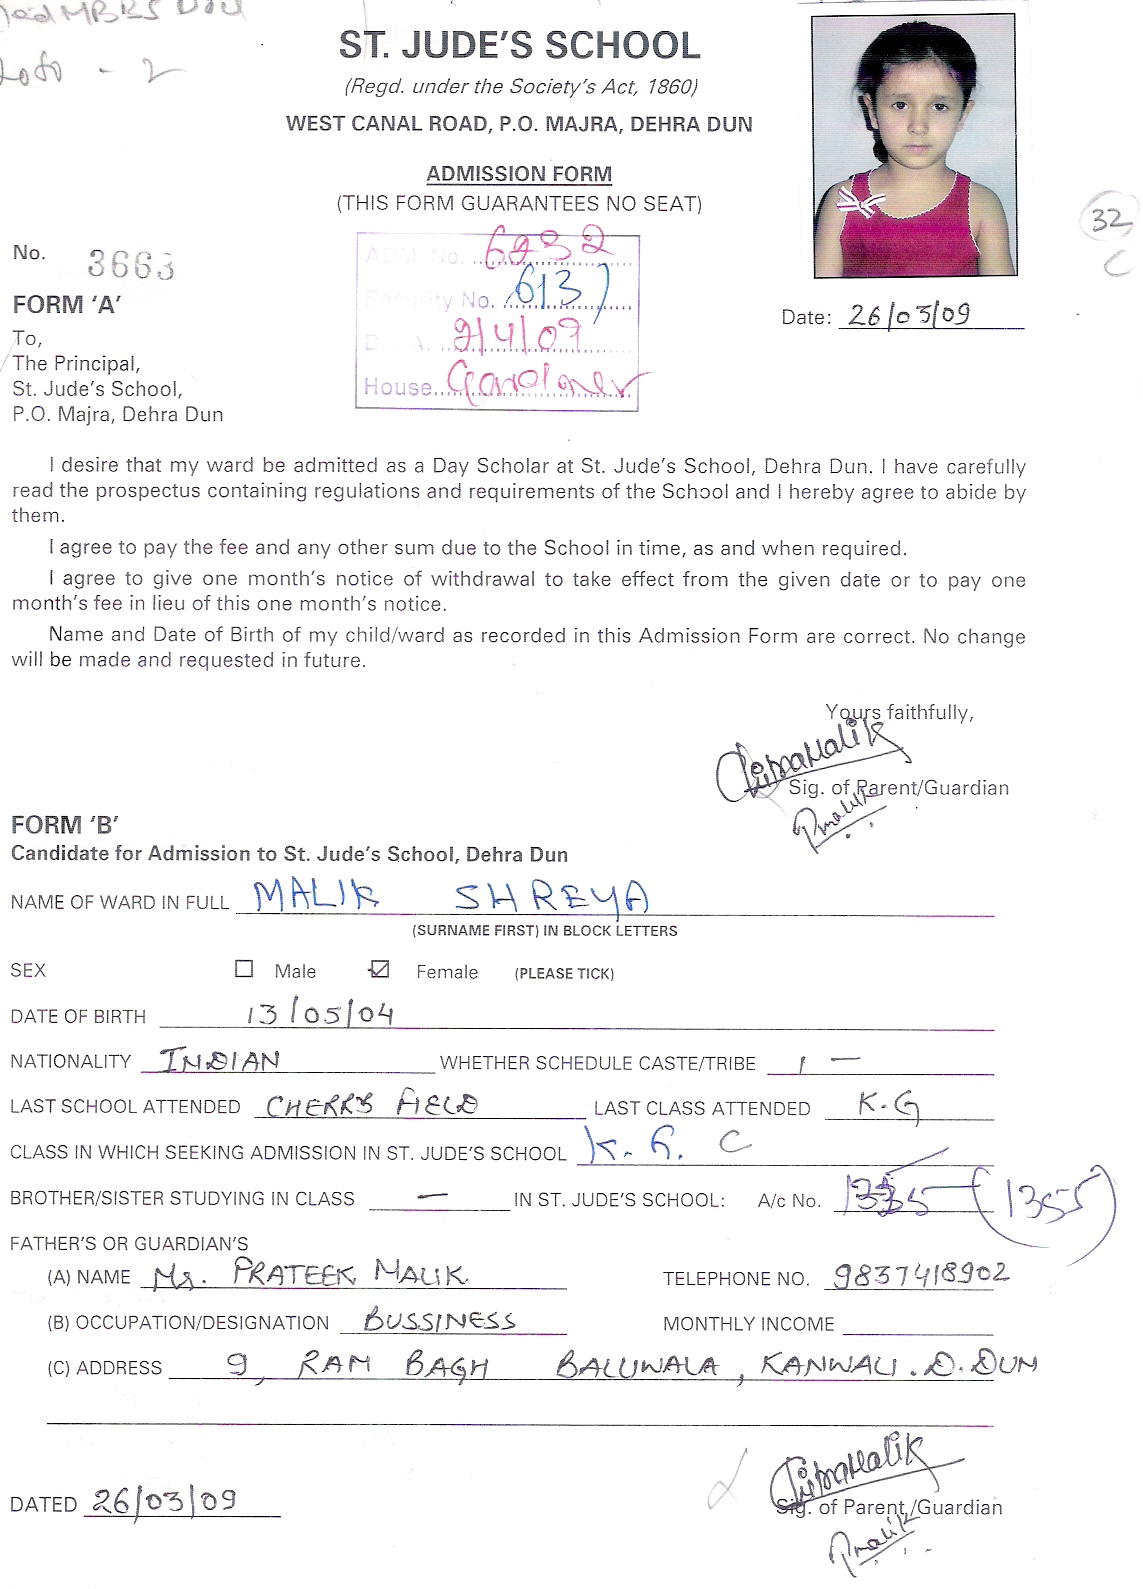 ST. JUDE'S SCHOOL
(Regd. under the Society's Act, 1860)
WEST CANAL ROAD, P.O. MAJRA, DEHRA DUN
ADMISSION FORM
(THIS FORM GUARANTEES NO SEAT)
32
C
No. 3663
ADM No. 6232
Security No. 6137
D.O.A. 2/4/09
House. Gardner
FORM 'A'
Date: 26/03/09
To,
The Principal,
St. Jude's School,
P.O. Majra, Dehra Dun
I desire that my ward be admitted as a Day Scholar at St. Jude's School, Dehra Dun. I have carefully
read the prospectus containing regulations and requirements of the School and I hereby agree to abide by
them.
I agree to pay the fee and any other sum due to the School in time, as and when required.
I agree to give one month's notice of withdrawal to take effect from the given date or to pay one
month's fee in lieu of this one month's notice.
Name and Date of Birth of my child/ward as recorded in this Admission Form are correct. No change
will be made and requested in future.
Yours faithfully,
Sig. of Parent/Guardian
PMalik
FORM 'B'
Candidate for Admission to St. Jude's School, Dehra Dun
NAME OF WARD IN FULL MALIK SHREYA
(SURNAME FIRST) IN BLOCK LETTERS
SEX Male Female (PLEASE TICK)
DATE OF BIRTH 13/05/04
NATIONALITY INDIAN WHETHER SCHEDULE CASTE/TRIBE —
LAST SCHOOL ATTENDED CHERRY FIELD LAST CLASS ATTENDED K.G
CLASS IN WHICH SEEKING ADMISSION IN ST. JUDE'S SCHOOL K.G. C
BROTHER/SISTER STUDYING IN CLASS — IN ST. JUDE'S SCHOOL: A/c No. (1355)
FATHER'S OR GUARDIAN'S
(A) NAME Mr. PRATEEK MALIK TELEPHONE NO. 9837418902
(B) OCCUPATION/DESIGNATION BUSSINESS MONTHLY INCOME
(C) ADDRESS 9, RAM BAGH BALUWALA, KANWALI. D. DUN
DATED 26/03/09
Sig. of Parent/Guardian
PMalik